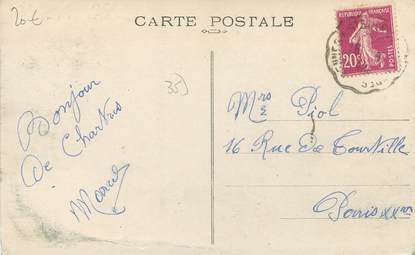 20€
CARTE POSTALE
RÉPUBLIQUE FRANÇAISE
20c
POSTES
35)
Bonjour
de Chartres
Marcel
Mrs Piol
16 Rue de Tourville
Paris XXme